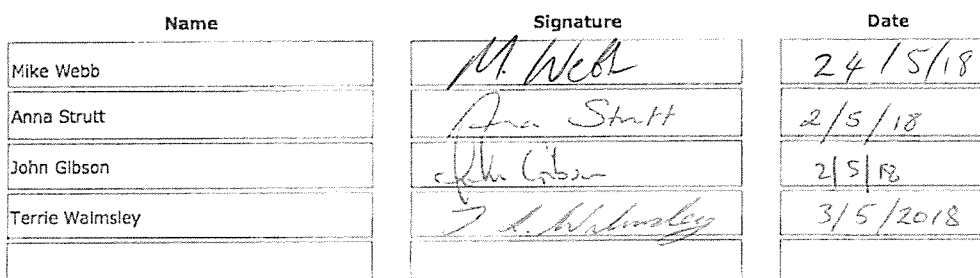 Name Signature Date
Mike Webb M. Webb 24/5/18
Anna Strutt Anna Strutt 2/5/18
John Gibson John Gibson 2/5/18
Terrie Walmsley T L Walmsley 3/5/2018